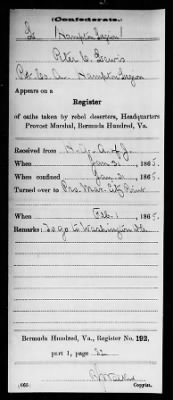 Confederate.
(Hampton Legion)
Peter
Co. A Hampton Legion
Appears on a
Register
of oaths taken by rebel deserters, Headquarters
Provost Marshal, Bermuda Hundred, Va.
Received from
When Jan. 31, 1865.
When confined Jan. 31, 1865.
Turned over to Pro. Mar. City Point
When Feb. 1, 1865.
Remarks: To go to Washington D.C.
Bermuda Hundred, Va., Register No. 192,
part 1, page 22
Copyist.